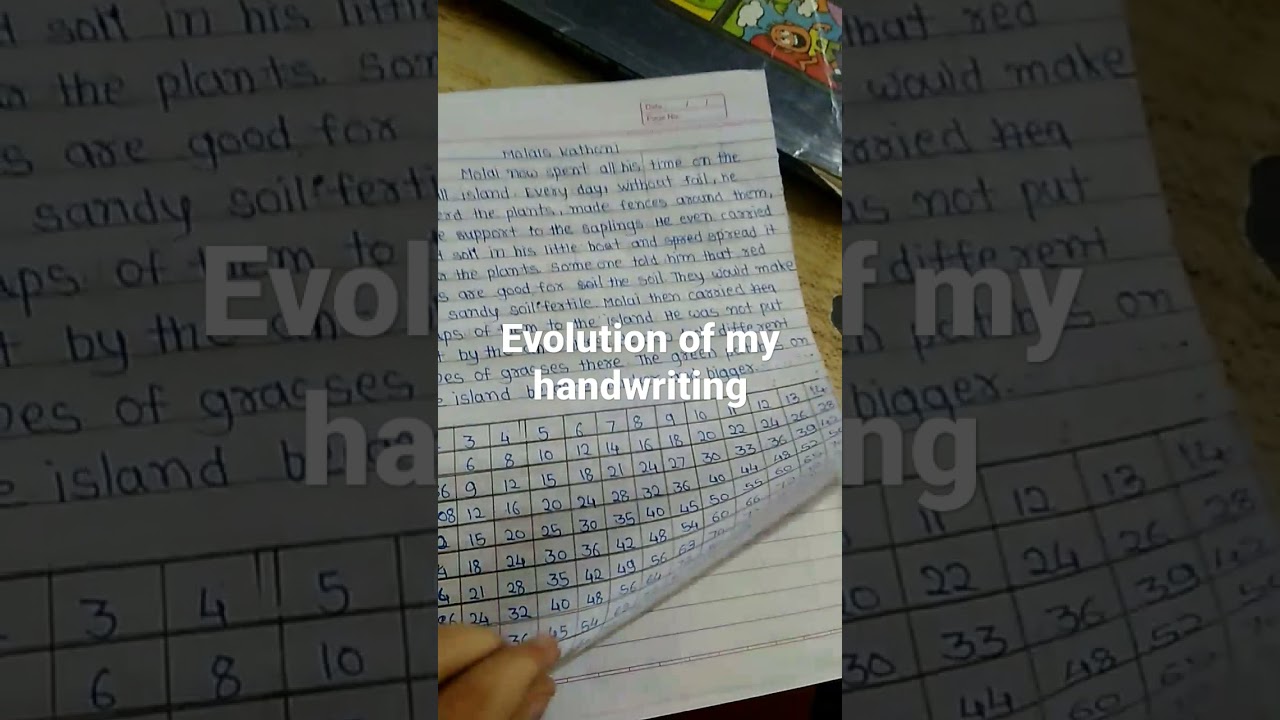 Date / /
Page No.
Molais Kathoni
Molai now spent all his time on the
ll island. Every day, without fail, he
erd the plants, made fences around them,
e support to the saplings. He even carried
soil in his little boat and spred spread it
n the plants. Some one told him that red
s are good for soil the soil. They would make
sandy soil fertile. Molai then carried hea
aps of them to the island. He was not put
t by the different
pes of grasses there. The green patches on
e island bigger.
Evolution of my
handwriting
3 4 5 6 7 8 9 10 11 12 13 14
6 8 10 12 14 16 18 20 22 24 26 28
6 9 12 15 18 21 24 27 30 33 36 39 42
08 12 16 20 24 28 32 36 40 44 48 52
2 15 20 25 30 35 40 45 50 55 60
18 24 30 36 42 48 54 60 66
21 28 35 42 49 56 63 70
24 32 40 48 56 64
36 45 54